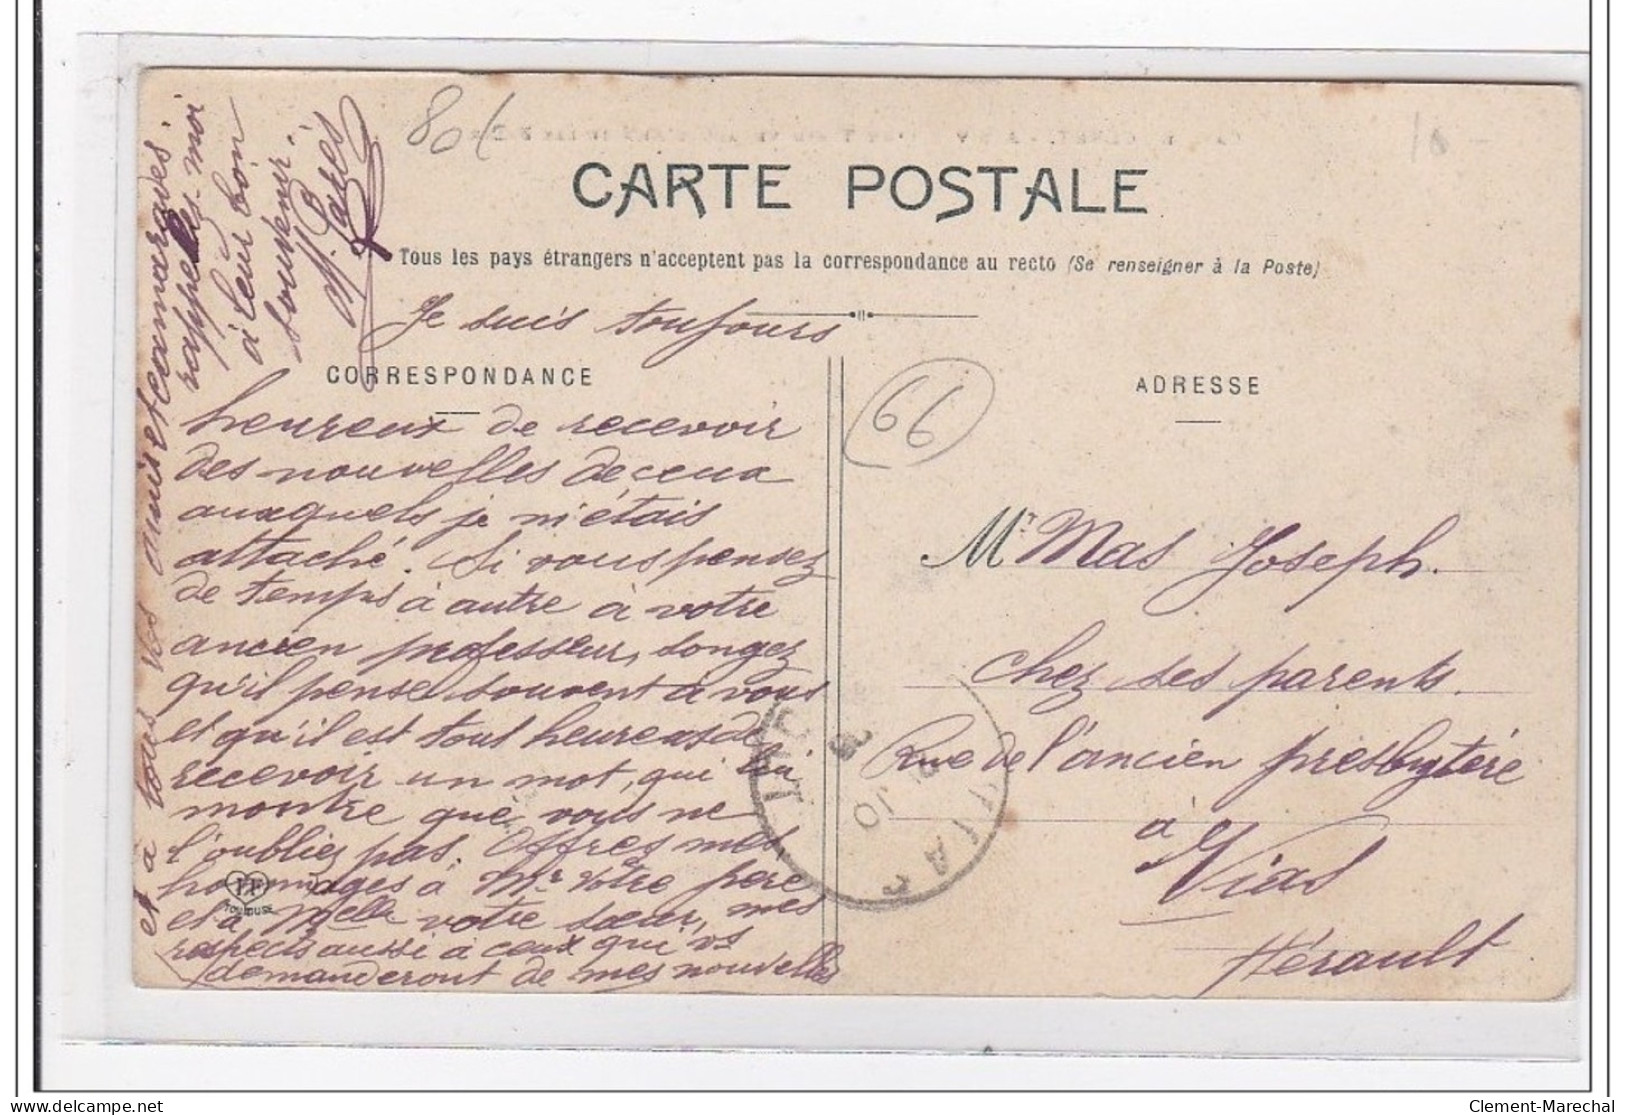 80f
10
CARTE POSTALE
Tous les pays étrangers n'acceptent pas la correspondance au recto (Se renseigner à la Poste)
CORRESPONDANCE
ADRESSE
66
Je suis toujours
heureux de recevoir
des nouvelles de ceux
auxquels je m'étais
attaché. Si vous pensez
de temps à autre à votre
ancien professeur, songez
qu'il pense souvent à vous
et qu'il est tout heureux de
recevoir un mot, qui lui
montre que vous ne
l'oubliez pas. Offres mes
hommages à Mr votre père
et à Melle votre sœur, mes
respects aussi à ceux qui vs
demanderont de mes nouvelles
et à tous vos amis et camarades.
rappelez-moi
à leur bon
souvenir.
Mr Mas Joseph.
chez ses parents.
Rue de l'ancien presbytére
à Vias
Hérault
VIAS
TOULOUSE
Clement-Marechal